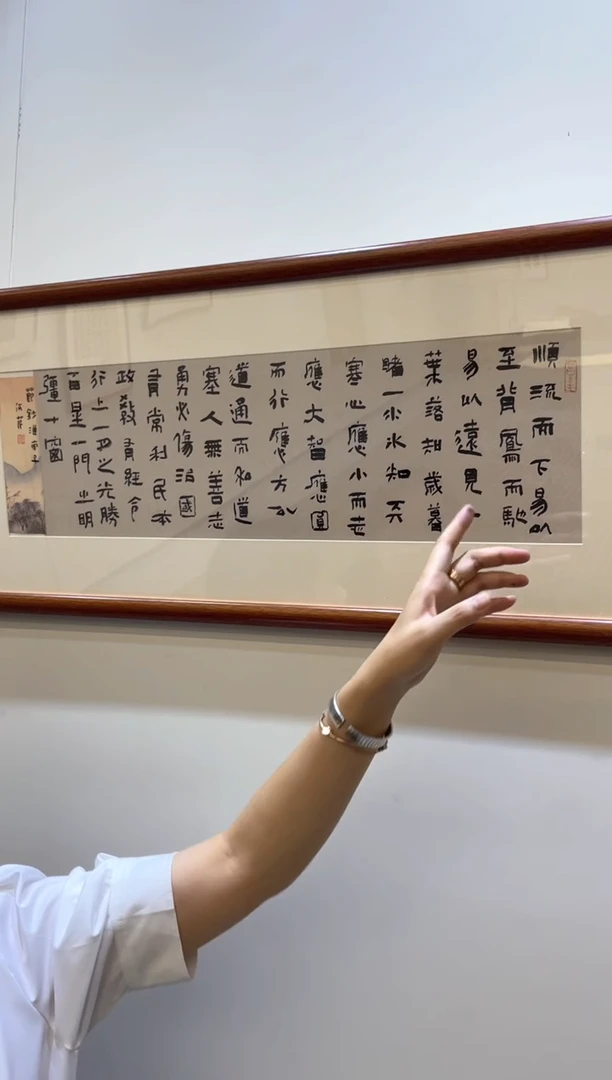 順流而下易以
至背風而馳
易以遠見一
葉落知歲暮
睹一小冰知天
寒心應小而志
應大智應圓
而行應方以
道通而知道
塞人無善志
勇必傷治國
有常利民本
政教有經令
行上一月之光勝
百星一門之明
彊十窗
節錄淮南子